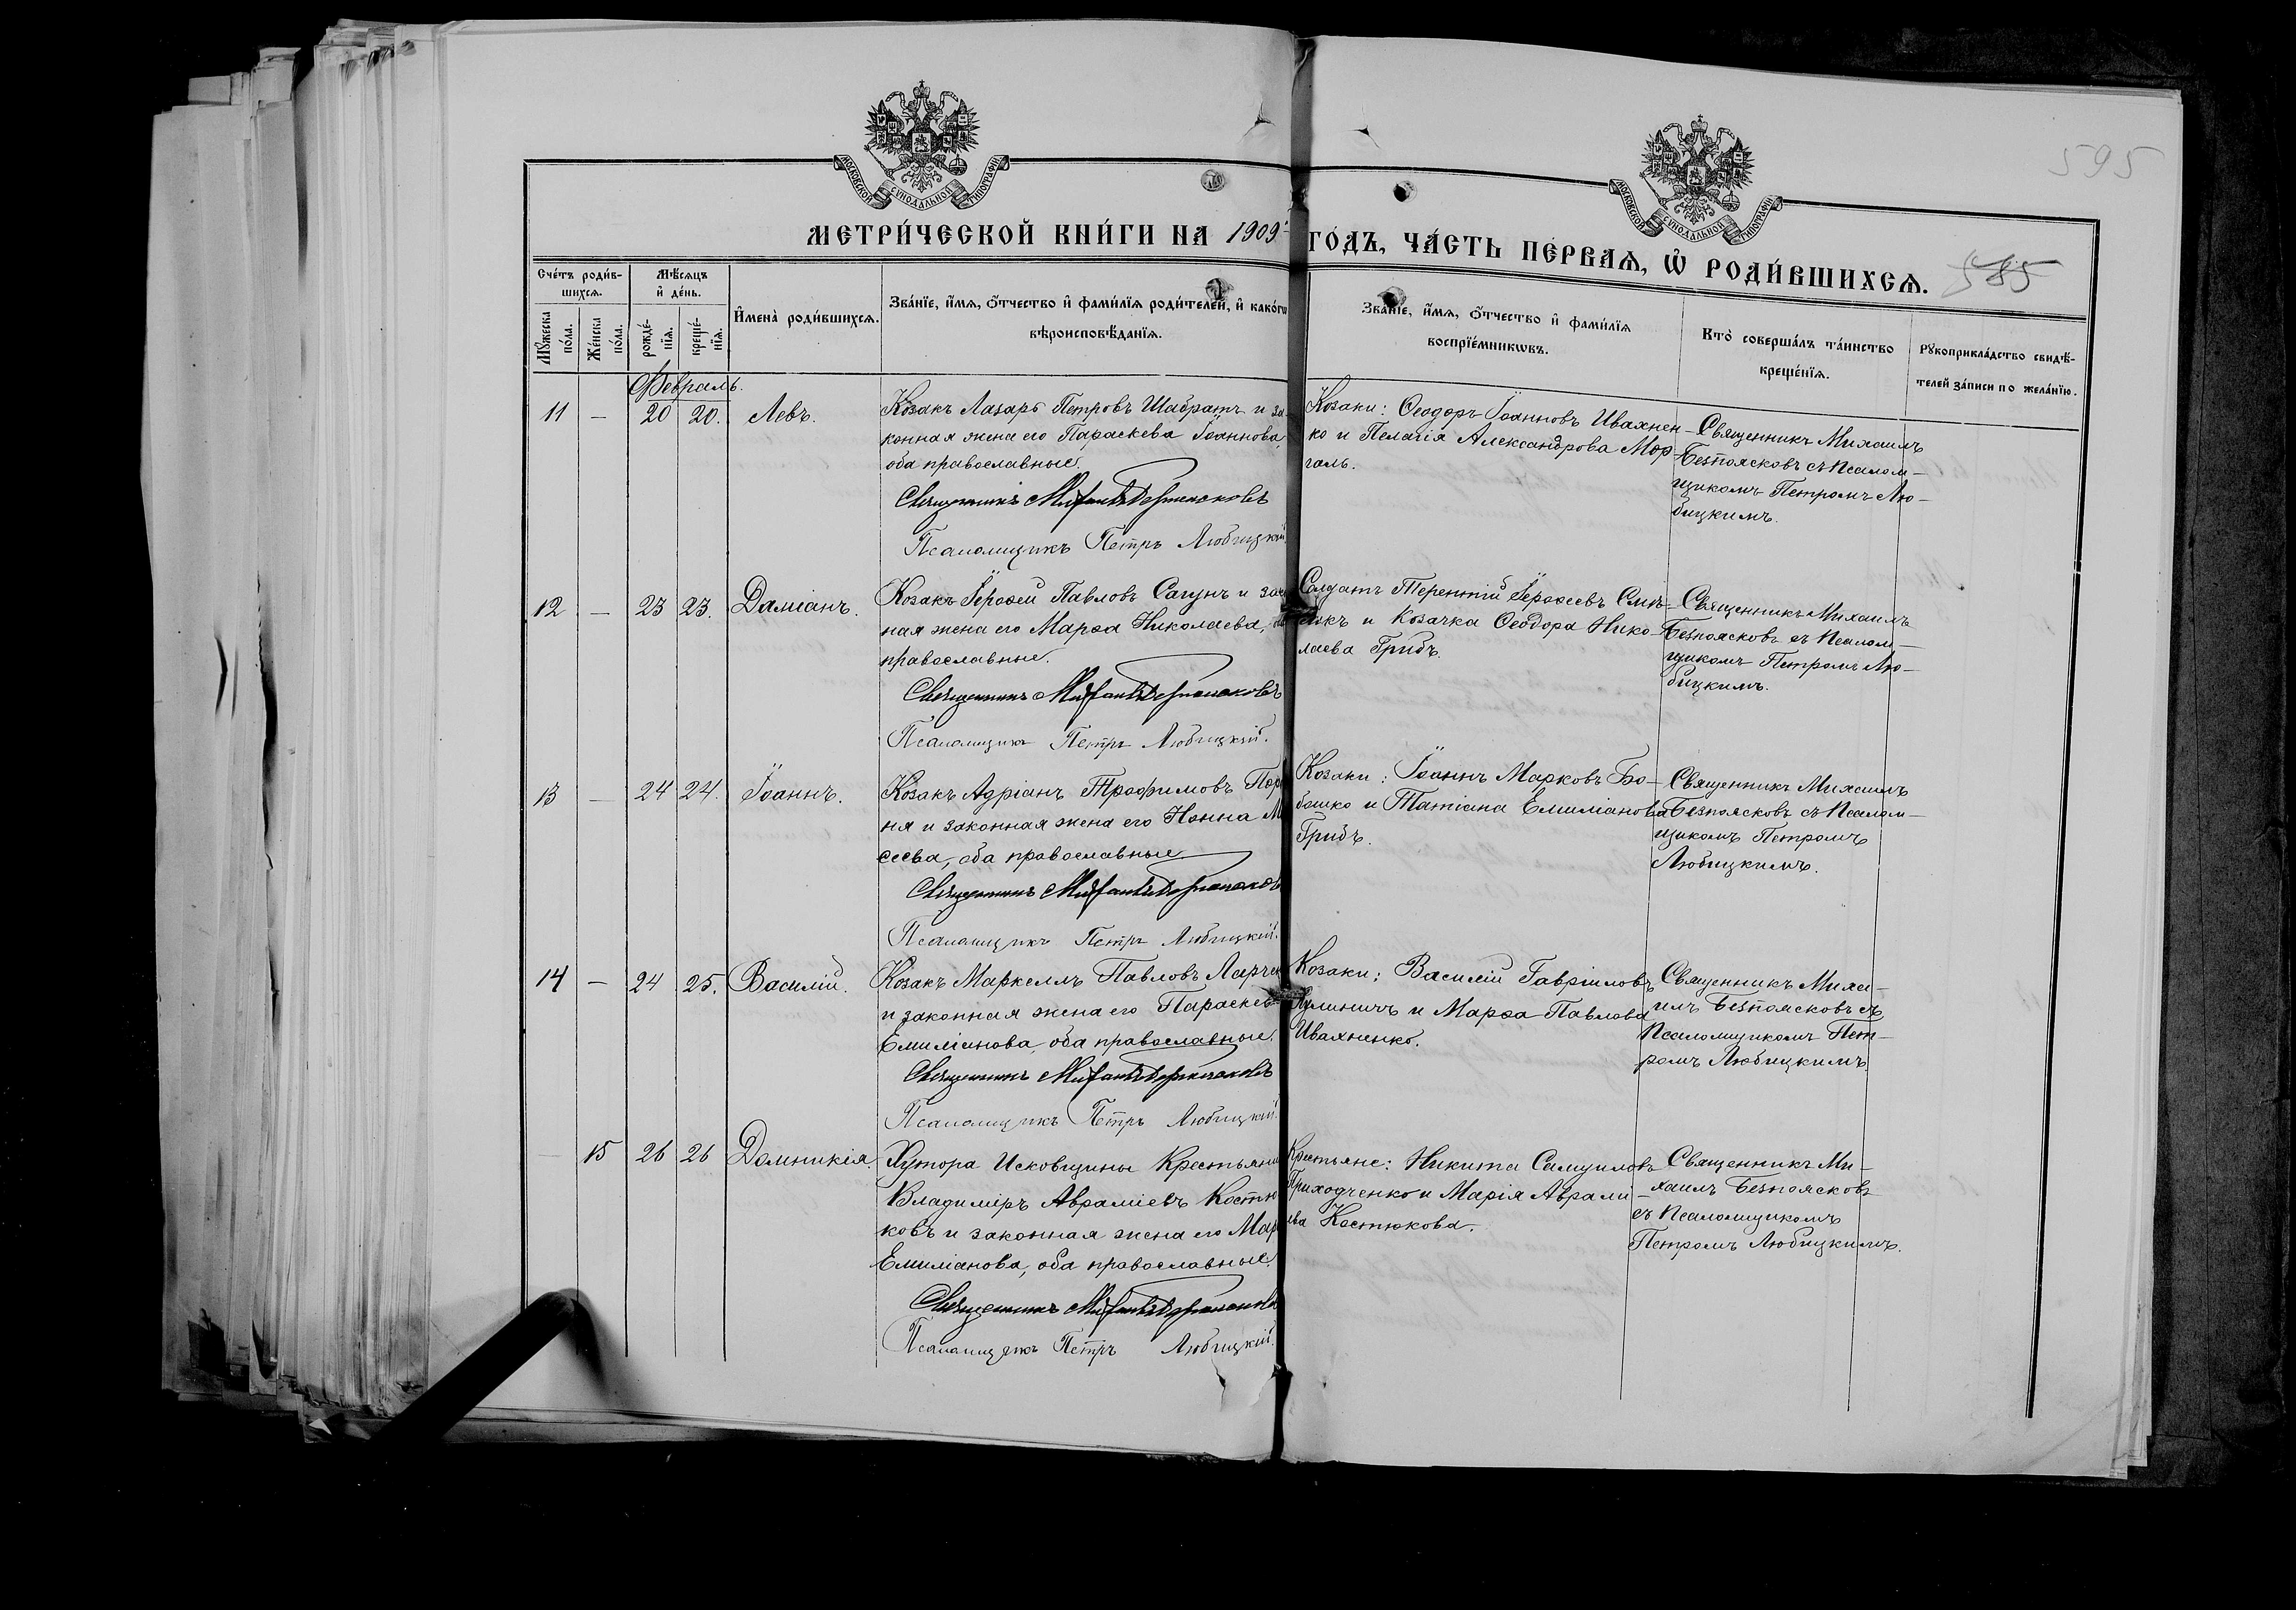 595
МОСКОВСКОЙ СУНОДАЛЬНОЙ ТИПОГРАФІИ
МОСКОВСКОЙ СУНОДАЛЬНОЙ ТИПОГРАФІИ
МЕТРИ́ЧЕСКОЙ КНИ́ГИ НА 1909 ГО́ДЪ, ЧА́СТЬ ПЕ́РВАЯ, Ѡ҆ РОДИ́ВШИХСЯ.
585
Сче́тъ роди́в-
шихся.
Мѣ́сяцъ
и҆ де́нь.
И҆мена̀ роди́вшихся.
Зва́нїе, и҆́мя, ѻ҆́тчество и҆ фами́лїя роди́телей, и҆ како́гѡ
вѣроисповѣ́данїя.
Зва́нїе, и҆́мя, ѻ҆́тчество и҆ фами́лїя
воспрїе́мникѡвъ.
Кто̀ соверша́лъ та́инство
креще́нїя.
Рꙋкоприкла́дство свидѣ́-
телей за́писи по жела́нїю.
Мꙋ́жеска
по́ла.
Же́нска
по́ла.
рожде́-
нїя.
креще́-
нїя.
Февраль.
11 — 20 20. Левъ.
Козакъ Лазарь Петровъ Шабратъ и за-
конная жена его Параскева Іоаннова,
оба православные.
Священникъ Михаилъ Безпоясковъ
Псаломщикъ Петръ Любицкій.
Козаки: Ѳеодоръ Іоанновъ Ивахнен-
ко и Пелагія Александрова Мор-
галь.
Священникъ Михаилъ
Безпоясковъ съ Псалом-
щикомъ Петромъ Лю-
бицкимъ.
12 — 23 23. Даміанъ.
Козакъ Іероѳей Павловъ Сагунъ и зак
ная жена его Марѳа Николаева,
православные.
Священникъ Михаилъ Безпоясковъ
Псаломщикъ Петръ Любицкій.
Солдатъ Терентій Іероѳеевъ
и Козачка Ѳеодора Нико-
лаева Грибъ.
Священникъ Михаилъ
Безпоясковъ съ Псалом-
щикомъ Петромъ Лю-
бицкимъ.
13 — 24 24. Іоаннъ.
Козакъ Адріанъ Трофимовъ
ня и законная жена его Нонна М
сеева, оба православные.
Священникъ Михаилъ Безпоясковъ
Псаломщикъ Петръ Любицкій.
Козаки: Іоаннъ Марковъ Бо-
башко и Татіана Емиліанова
Грибъ.
Священникъ Михаилъ
Безпоясковъ съ Псалом-
щикомъ Петромъ
Любицкимъ.
14 — 24 25. Василій.
Козакъ Маркеллъ Павловъ Ларчен
и законная жена его Параскев
Емиліанова, оба православные.
Священникъ Михаилъ Безпоясковъ
Псаломщикъ Петръ Любицкій.
Козаки: Василій Гавріиловъ
Кулиничъ и Марѳа Павлова
Ивахненко.
Священникъ Миха-
илъ Безпоясковъ съ
Псаломщикомъ Пет-
ромъ Любицкимъ.
— 15 26 26 Домникія.
Хутора Исковщины Крестьянин
Владиміръ Авраміевъ Костю
ковъ и законная жена его Мар
Емиліанова, оба православные.
Священникъ Михаилъ Безпоясковъ
Псаломщикъ Петръ Любицкій.
Крестьяне: Никита Самуиловъ
Приходченко и Марія Аврамі-
ева Костюкова.
Священникъ Ми-
хаилъ Безпоясковъ
съ Псаломщикомъ
Петромъ Любицкимъ.